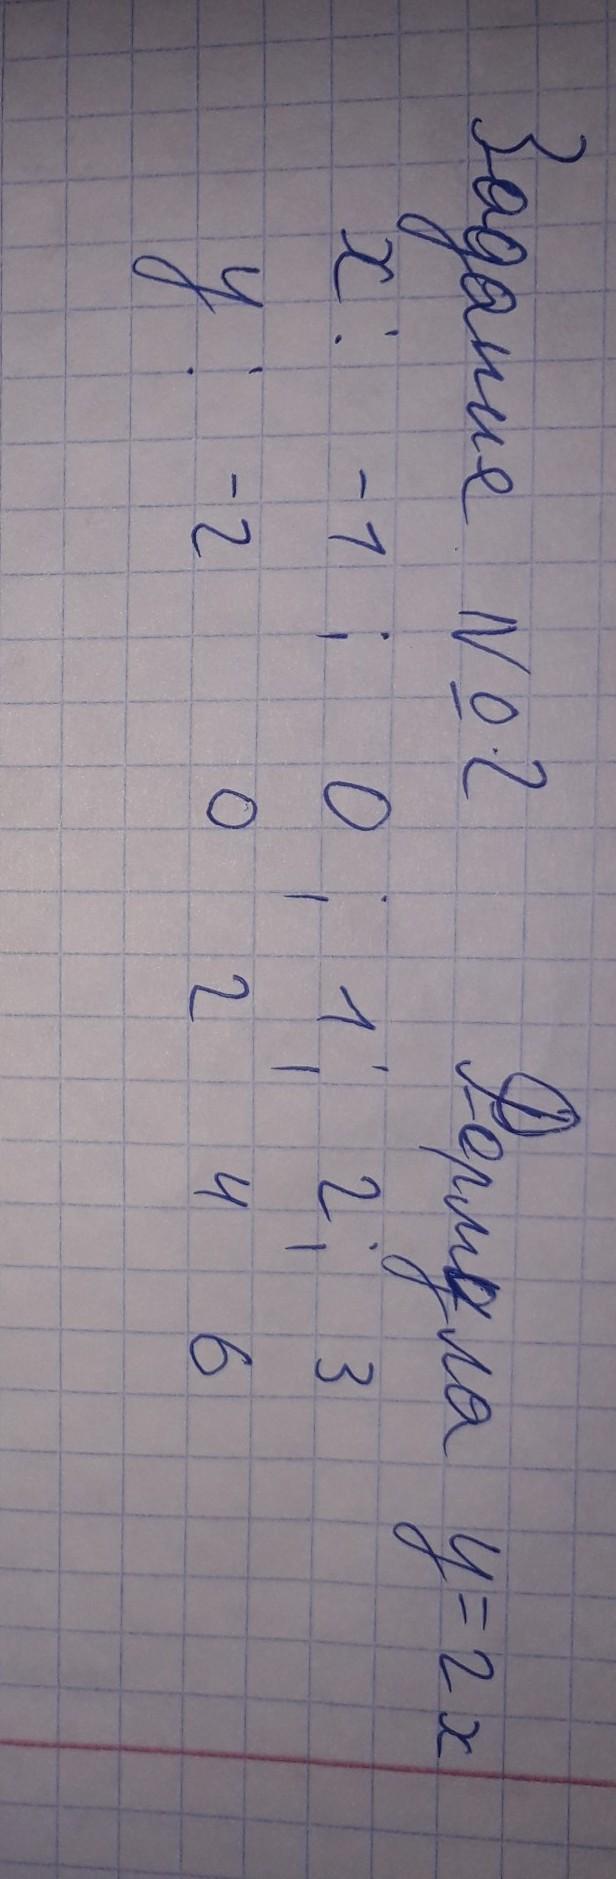 Задание №2 Формула y=2x
x: -1; 0; 1; 2; 3
y: -2 0 2 4 6